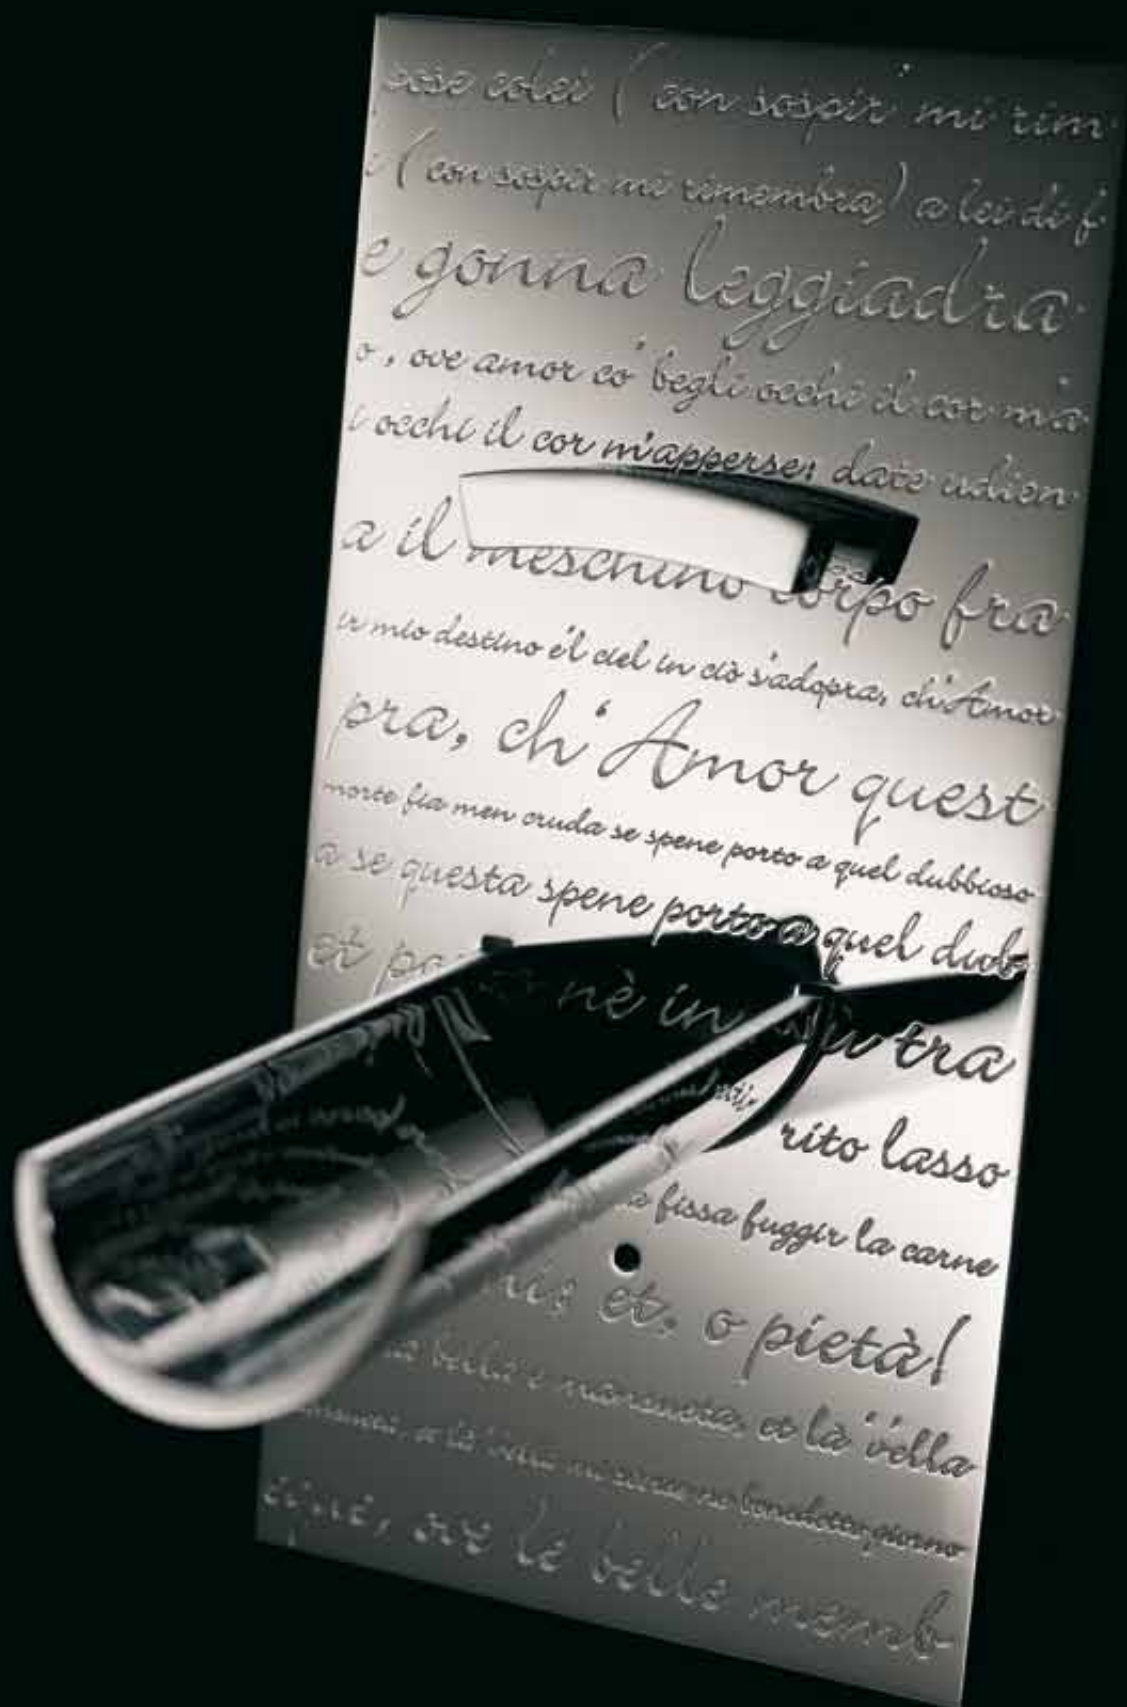 cose colei ( con sospir mi rim
i ( con sospir mi rimembra) a lei di f
e gonna leggiadra
o, ove amor co' begli occhi il cor m'a
i occhi il cor m'apperse: date udien
a il meschino corpo fra
ir mio destino e'l ciel in ciò s'adopra, ch'Amor
pra, ch'Amor quest
morte fia men cruda se spene porto a quel dubbioso
a se questa spene porto a quel dub
et nè in più tra
rito lasso
fissa fuggir la carne
et. o pietà!
bella e mansueta, et là 'vella
et là 'vella benedetto giorno
que, ove le belle memb